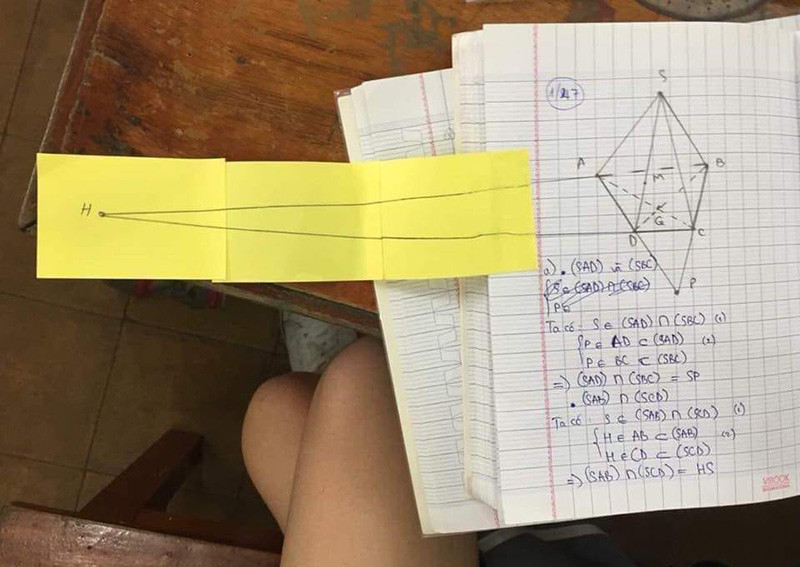 1/47
S
A
B
M
H
G
D
C
P
a) • (SAD) và (SBC)
S ∈ (SAD) ∩ (SBC)
P ∈
Ta có: S ∈ (SAD) ∩ (SBC) (1)
P ∈ AD ⊂ (SAD) (2)
P ∈ BC ⊂ (SBC)
=) (SAD) ∩ (SBC) = SP
• (SAB) ∩ (SCD)
Ta có: S ∈ (SAB) ∩ (SCD) (1)
H ∈ AB ⊂ (SAB) (2)
H ∈ CD ⊂ (SCD)
=) (SAB) ∩ (SCD) = HS
VIBOOK